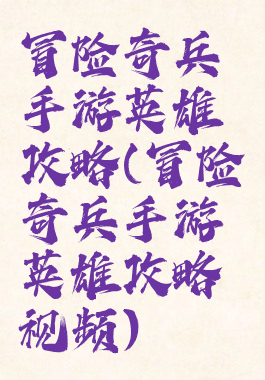 冒险奇兵
手游英雄
攻略(冒险
奇兵手游
英雄攻略
视频)